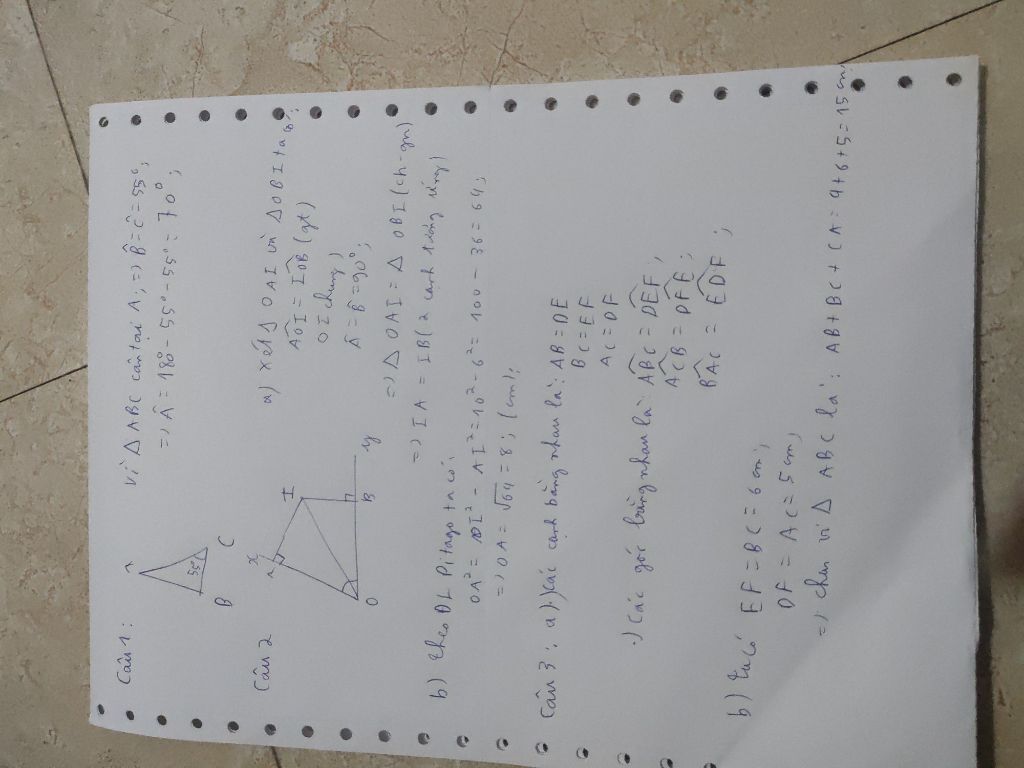 Câu 1:
A
B
C
55°
Vì △ABC cân tại A; => B̂ = Ĉ = 55°;
=> Â = 180 - 55° - 55° = 70°
Câu 2
x
A
I
O
B
y
a) Xét △OAI và △OBI ta có:
AÔI = IÔB (gt)
OI chung)
Â = B̂ = 90°;
=> △OAI = △OBI (ch-gn)
=> IA = IB (2 cạnh tương ứng)
b) theo ĐL Pitago ta có:
OA² = OI² - AI² = 10² - 6² = 100 - 36 = 64;
=> OA = √64 = 8; (cm);
Câu 3: a).) các cạnh bằng nhau là: AB = DE
BC = EF
AC = DF
.) Các góc bằng nhau là: AB̂C = DÊF;
AĈB = DF̂E;
BÂC = ED̂F;
b) ta có EF = BC = 6 cm;
DF = AC = 5 cm;
=> chu vi △ABC là: AB + BC + CA = 4 + 6 + 5 = 15 cm